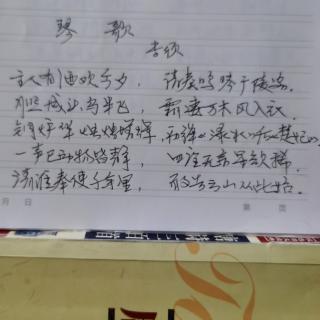 琴 歌
李颀
主人有酒欢今夕，请奏鸣琴广陵客。
月照城头乌半飞，霜凄万木风入衣。
铜炉华烛烛增辉，初弹渌水后楚妃。
一声已动物皆静，四座无言星欲稀。
清淮奉使千余里，敢告云山从此始。
月 日 第 页
唐诗三百首